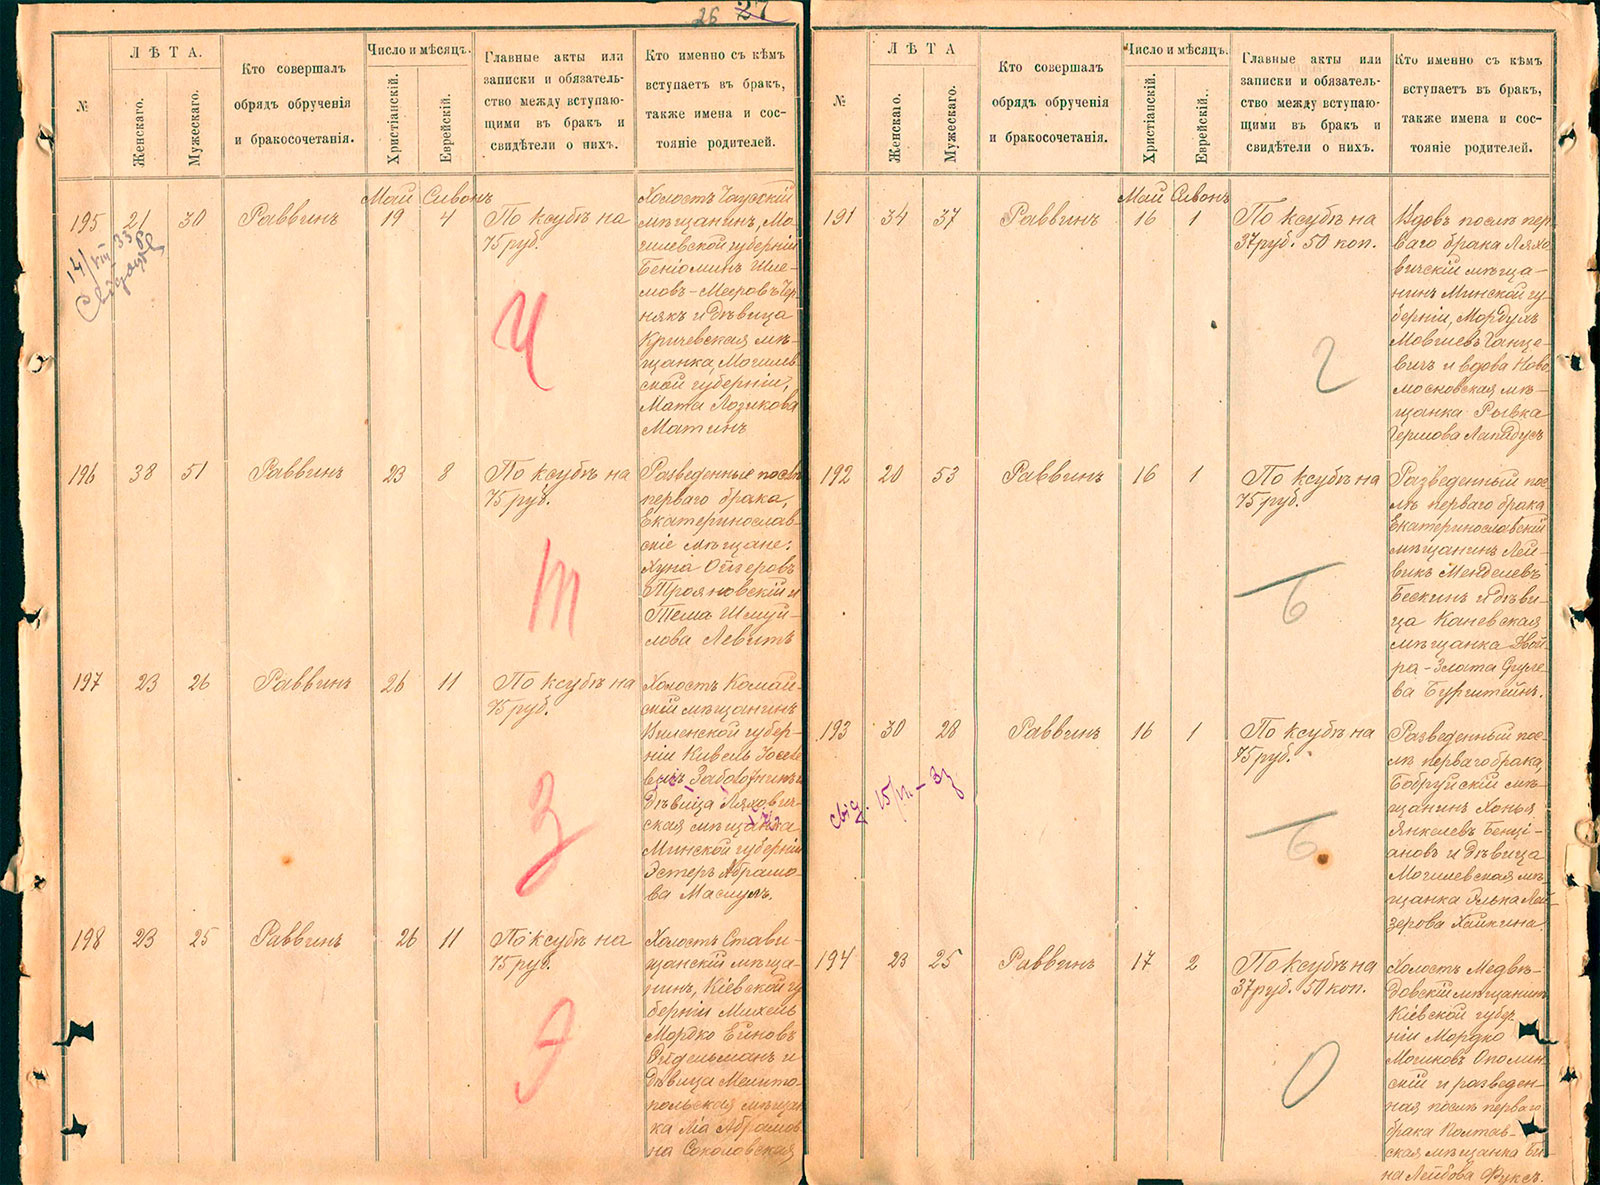 26 27
№
ЛѢТА.
Женскаго.
Мужескаго.
Кто совершалъ
обрядъ обрученія
и бракосочетанія.
Число и мѣсяцъ.
Христіанскій.
Еврейскій.
Главные акты или
записки и обязатель-
ство между вступаю-
щими въ бракъ и
свидѣтели о нихъ.
Кто именно съ кѣмъ
вступаетъ въ бракъ,
также имена и сос-
тояніе родителей.
Май Сивонъ
195 21 30 Раввинъ 19 4
По ксубѣ на
75 руб.
Холостъ Чаусскій
мѣщанинъ, Мо-
гилевской губерніи
Беніоминъ Шле-
мовъ-Мееровъ Чер-
някъ и дѣвица
Кричевская мѣ-
щанка, Могилев-
ской губерніи,
Мата
Матинъ
14/VIII 33 р
Ч
196 38 51 Раввинъ 23 8
По ксубѣ на
75 руб.
Разведенные послѣ
перваго брака,
Екатеринослав-
скіе мѣщане:
Хуна Ойзеровъ
Трояновскій и
Тема Шмуй-
лова Левитъ
Т
197 23 26 Раввинъ 26 11
По ксубѣ на
75 руб.
Холостъ Комай-
скій мѣщанинъ
Виленской губер-
ніи Кивель
дѣвица Ляхович-
ская мѣщанка
Минской губерніи
Эстеръ Абрамо-
ва
З
198 23 25 Раввинъ 26 11
По ксубѣ на
75 руб.
Холостъ Стави-
щанскій мѣща-
нинъ, Кіевской гу
берніи Михель
Мордко Ейновъ
Эйдельманъ и
дѣвица Мелито-
польская мѣщан
ка Лія Абрамов
на Соколовская
Э
№
ЛѢТА
Женскаго.
Мужескаго.
Кто совершалъ
обрядъ обрученія
и бракосочетанія.
Число и мѣсяцъ.
Христіанскій.
Еврейскій.
Главные акты или
записки и обязатель-
ство между вступаю-
щими въ бракъ и
свидѣтели о нихъ.
Кто именно съ кѣмъ
вступаетъ въ бракъ,
также имена и сос-
тояніе родителей.
Май Сивонъ
191 34 37 Раввинъ 16 1
По ксубѣ на
37 руб. 50 коп.
Вдовъ послѣ пер
ваго брака Ляхо
вичскій мѣща-
нинъ Минской гу-
берніи, Мордухъ
Мовшевъ Ганце-
вичъ и вдова Ново
московская мѣ-
щанка Рывка
Гершова Лападусъ
Г
192 20 53 Раввинъ 16 1
По ксубѣ на
75 руб.
Разведенный пос
лѣ перваго брака
Екатеринославскій
мѣщанинъ Лей-
викъ Менделевъ
Бескинъ и дѣви-
ца Каневская
мѣщанка Двой-
ра-Злата Сруле-
ва Бурштейнъ.
Б
193 30 28 Раввинъ 16 1
По ксубѣ на
75 руб.
Разведенный пос-
лѣ перваго брака,
Бобруйскій мѣ-
щанинъ Хонья
Янкелевъ Бенці-
ановъ и дѣвица
Могилевская мѣ-
щанка Элька Лей-
зерова Хайкина.
Б
194 23 25 Раввинъ 17 2
По ксубѣ на
37 руб. 50 коп.
Холостъ Медвѣ-
довскій мѣщанинъ
Кіевской губер-
ніи Мордко
Мошковъ Ополин
скій и разведен-
ная послѣ перваго
брака Полтав-
ская мѣщанка Би
на Лейбова Фуксъ.
О